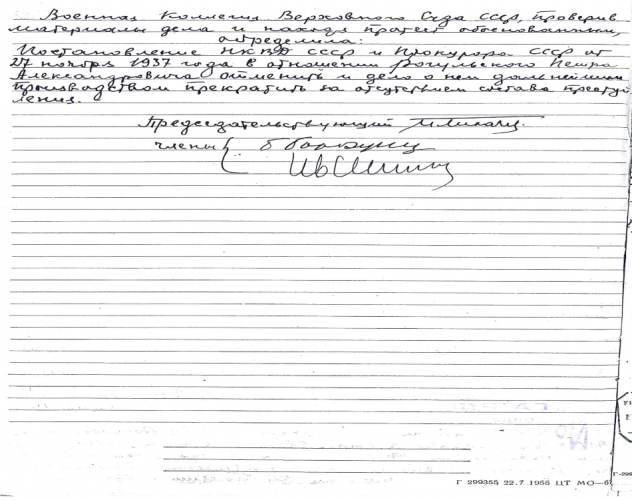 Военная Коллегия Верховного Суда СССР, проверив
материалы дела и находя протест обоснованным,
определила:
Постановление НКВД СССР и Прокурора СССР от
27 ноября 1937 года в отношении Рогульского Петра
Александровича отменить и дело о нем дальнейшим
производством прекратить за отсутствием состава преступ
ления.
Председательствующий
члены
Г 299355 22.7.1955 ЦТ МО—6